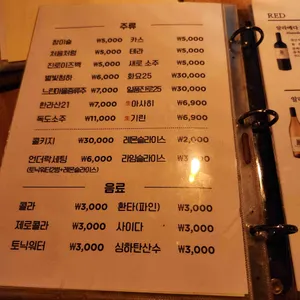 주류
참이슬 ₩5,000 카스 ₩5,000
처음처럼 ₩5,000 테라 ₩5,000
진로이즈백 ₩5,000 새로 소주 ₩5,000
별빛청하 ₩6,000 화요25 ₩30,000
느린마을막걸리 ₩6,000 일품진로25 ₩30,000
한라산21 ₩7,000 아사히 ₩6,900
독도소주 ₩11,000 기린 ₩6,900
콜키지 ₩30,000 레몬슬라이스 ₩2,000
언더락세팅 ₩6,000 라임슬라이스 ₩3,000
(토닉워터2병+레몬슬라이스)
음료
콜라 ₩3,000 환타(파인) ₩3,000
제로콜라 ₩3,000 사이다 ₩3,000
토닉워터 ₩3,000 싱하탄산수 ₩3,000
RED